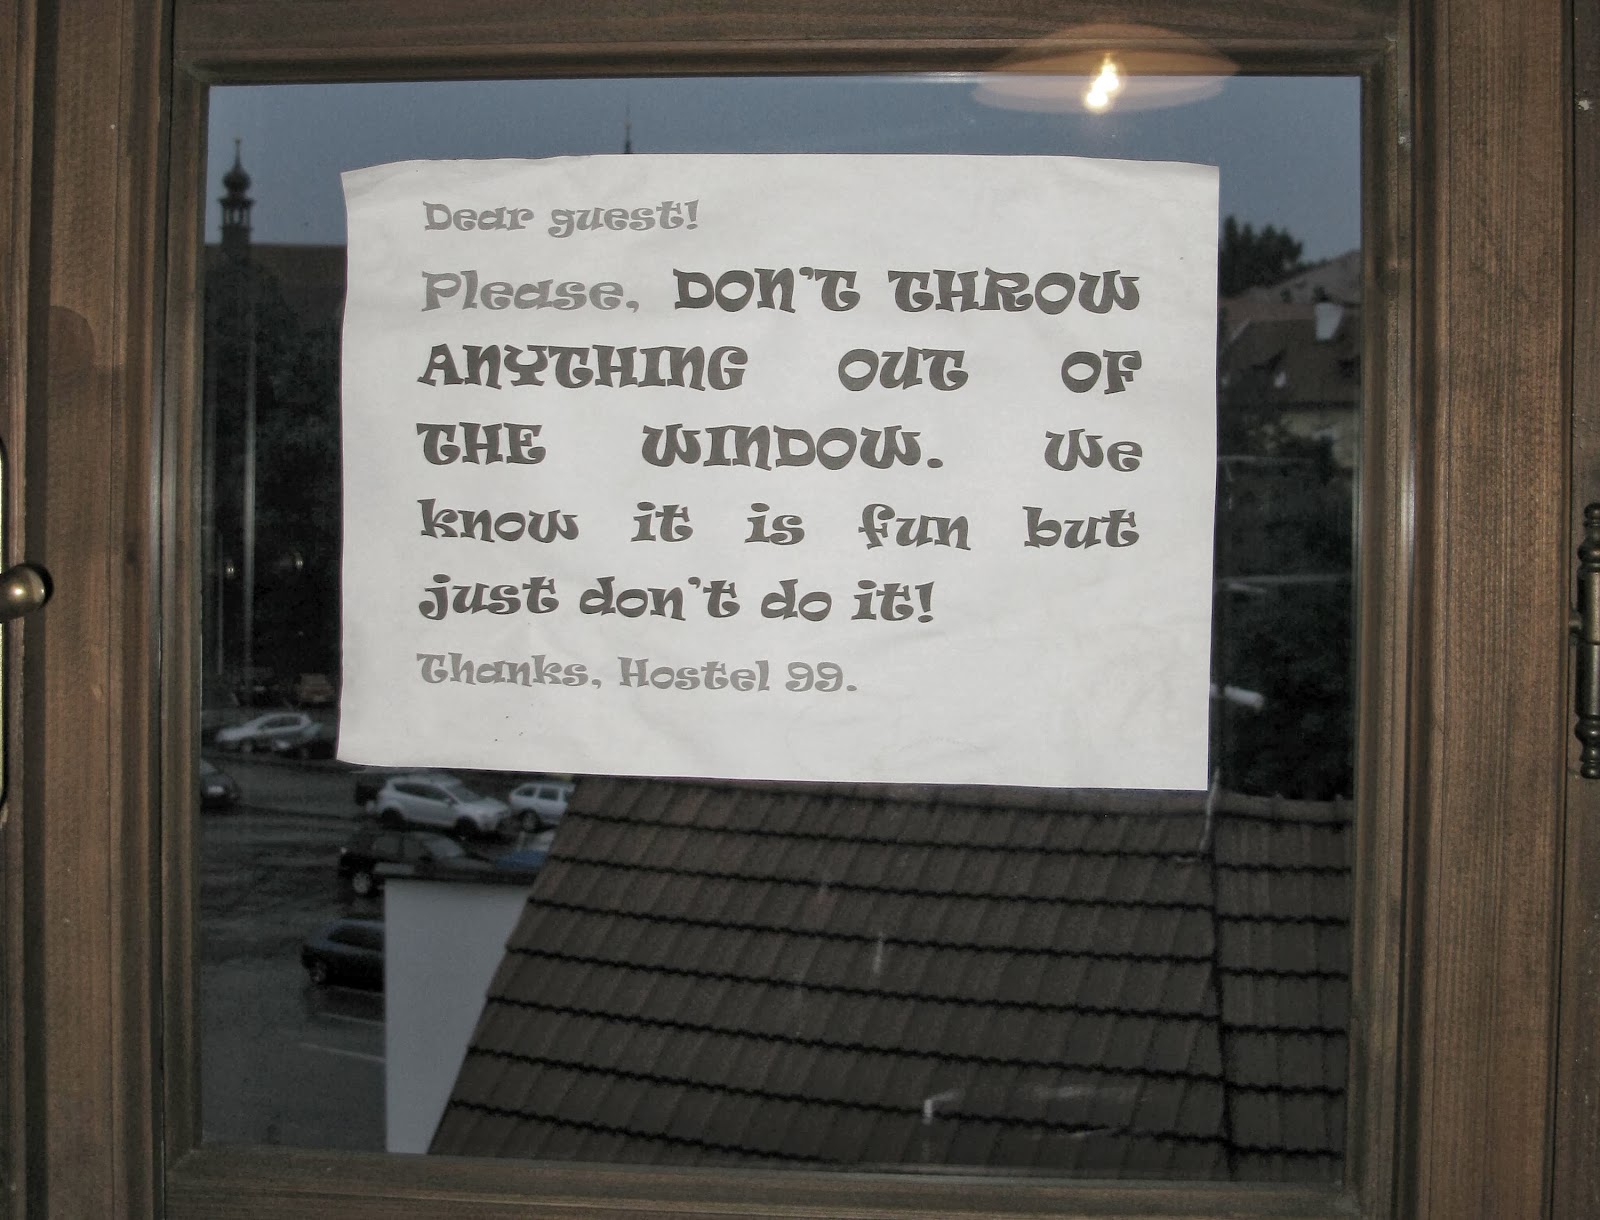 Dear guest!
Please, DON'T THROW
ANYTHING OUT OF
THE WINDOW. We
know it is fun but
just don't do it!
Thanks, Hostel 99.